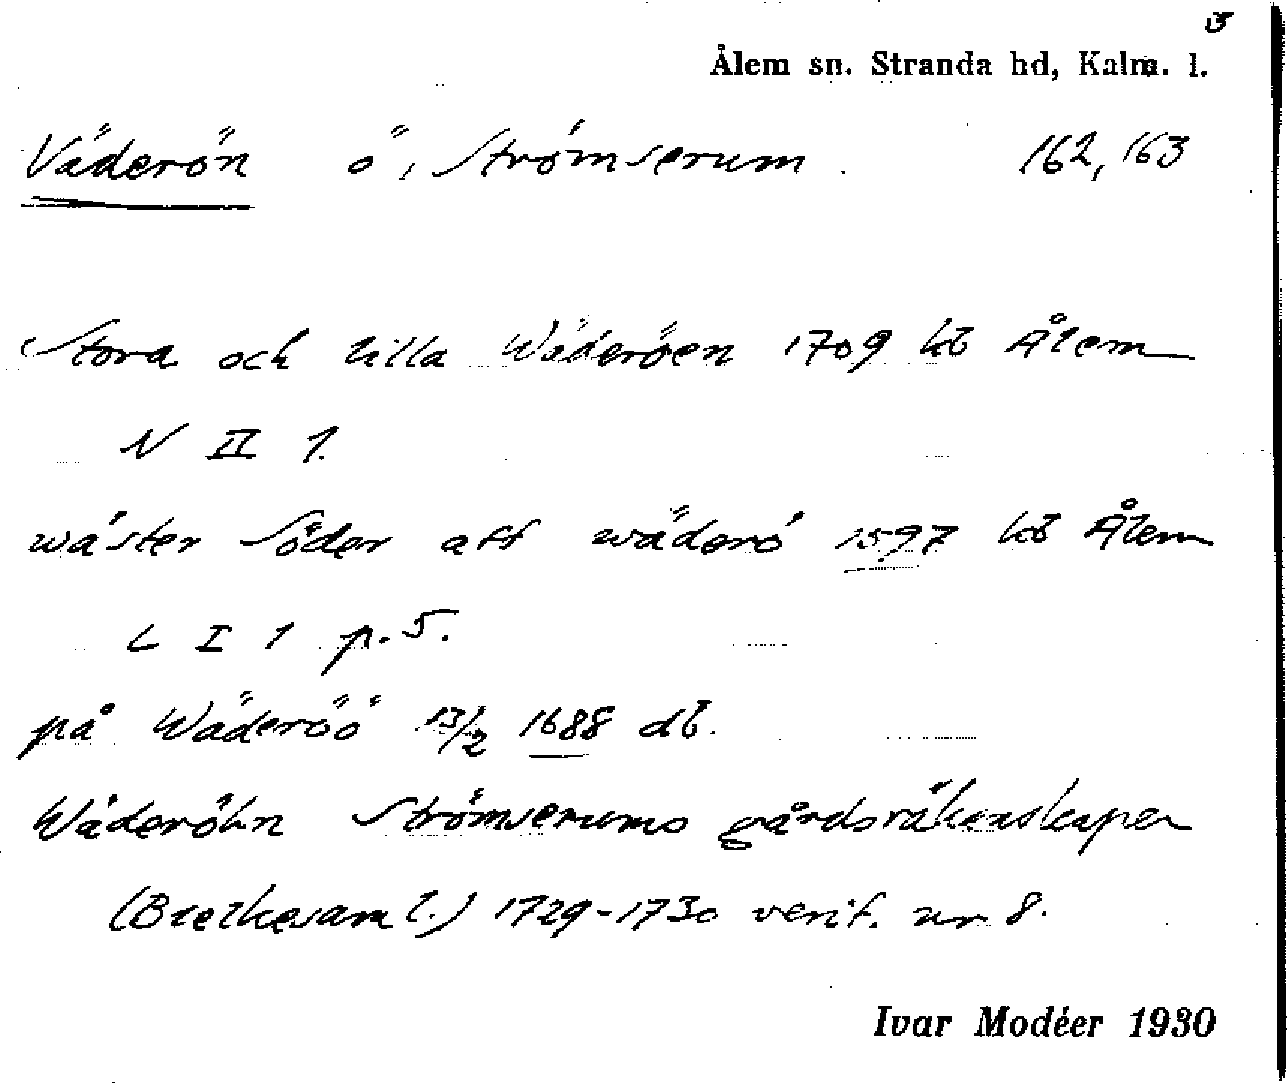 3
Ålem sn. Stranda hd, Kalm. l.
Väderön ö, Strömserum 162, 163
Stora och lilla Wäderöen 1709 kb Ålem
N II 1.
wäster Söder att wäderö 1597 kb Ålem
L I 1 p. 5.
på Wäderöö 13/2 1688 db.
Wäderöhn Strömserums gårdsräkenskaper
1729-1730 verif. nr 8.
Ivar Modéer 1930